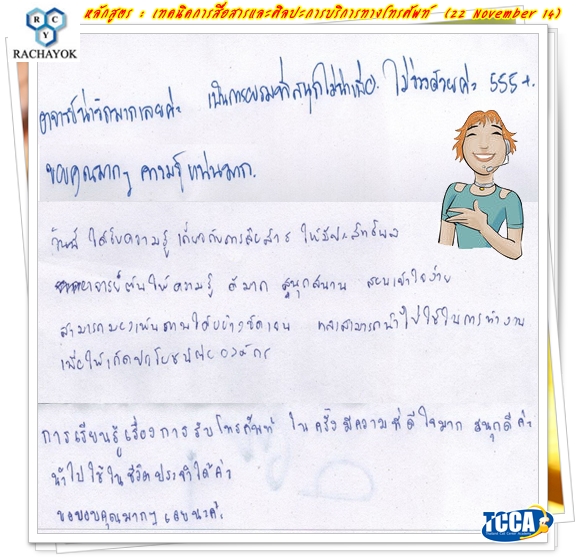 หลักสูตร : เทคนิคการสื่อสารและศิลปะการบริการทางโทรศัพท์ (22 November 14)
RCY
RACHAYOK
อาจารย์น่ารักมากเลยค่ะ เป็นการอบรมที่สนุกไม่น่าเบื่อ. ไม่ง่วงด้วยค่ะ 555+.
ขอบคุณมากๆ ความรู้แน่นมาก.
วันนี้ ได้รับความรู้ เกี่ยวกับการสื่อสาร ให้มีประสิทธิผล
อาจารย์ต้นให้ความรู้ ดีมาก สนุกสนาน สอนเข้าใจง่าย
สามารถมองเห็นภาพได้อย่างชัดเจน และสามารถนำไปใช้ในการทำงาน
เพื่อให้เกิดประโยชน์ต่อองค์กร
การเรียนรู้เรื่องการรับโทรศัพท์ ในครั้งนี้ความที่ดีใจมาก สนุกดีค่ะ
นำไปใช้ในชีวิตประจำได้ค่ะ
ขอขอบคุณมากๆ เลยนะค่ะ.
TCCA